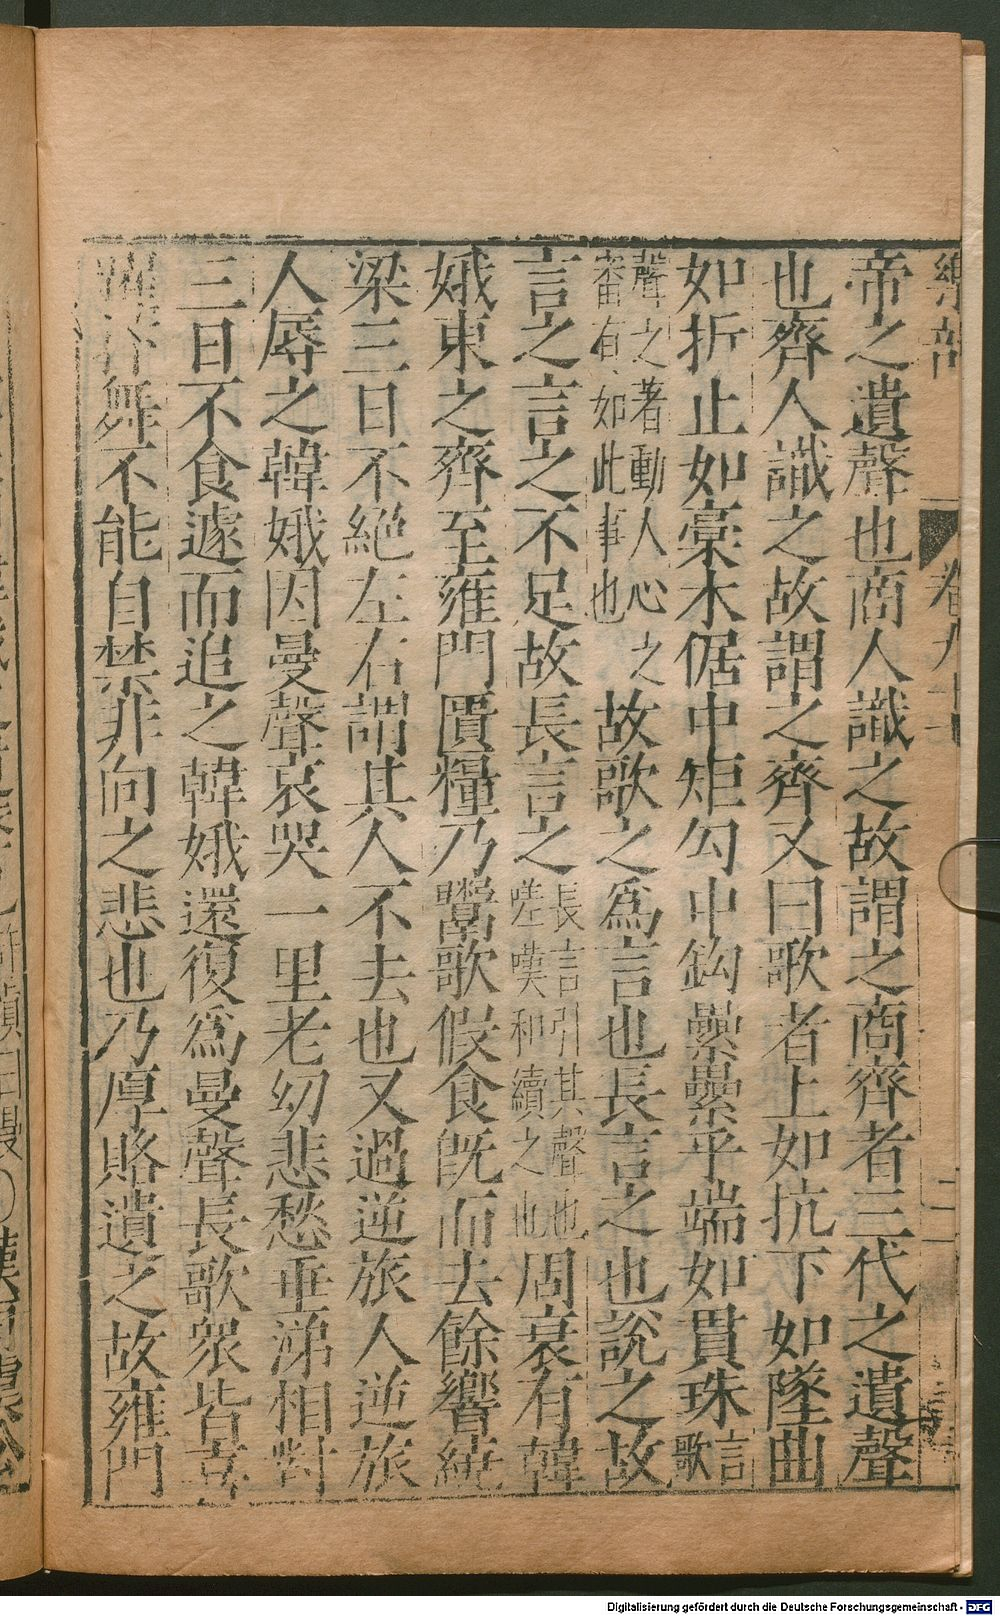 樂部
卷九十
二
帝之遺聲也商人識之故謂之商齊者三代之遺聲
也齊人識之故謂之齊又曰歌者上如抗下如墜曲
如折止如槀木倨中矩勾中鈎纍纍乎端如貫珠言歌
聲之著動人心之審有如此事也故歌之爲言也長言之也說之故
言之言之不足故長言之長言引其聲也嗟嘆和續之也周衰有韓
娥東之齊至雍門匱糧乃鬻歌假食既而去餘響繞
梁三日不絕左右謂其人不去也又過逆旅人逆旅
人辱之韓娥因曼聲哀哭一里老幼悲愁垂涕相對
三日不食遽而追之韓娥還復爲曼聲長歌衆皆喜
躍抃舞不能自禁非向之悲也乃厚賂遺之故雍門
Digitalisierung gefördert durch die Deutsche Forschungsgemeinschaft - DFG